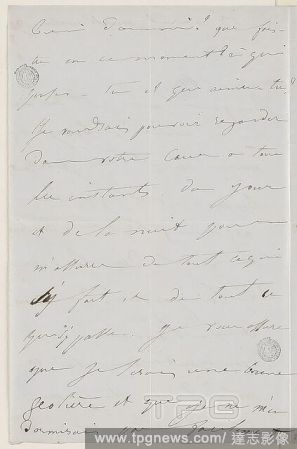 que fais-
tu en ce moment? à qui
penses-tu et
Je voudrais pouvoir regarder
dans votre cœur à tous
les instants du jour
et de la nuit pour
m'assurer de tout ce qui
s'y fait et de tout ce
qui s'y passe. Je vous assure
que je serais une bonne
geolière et que je ne m'en
dormirais pas
TPG
www.tpgnews.com / 達志影像